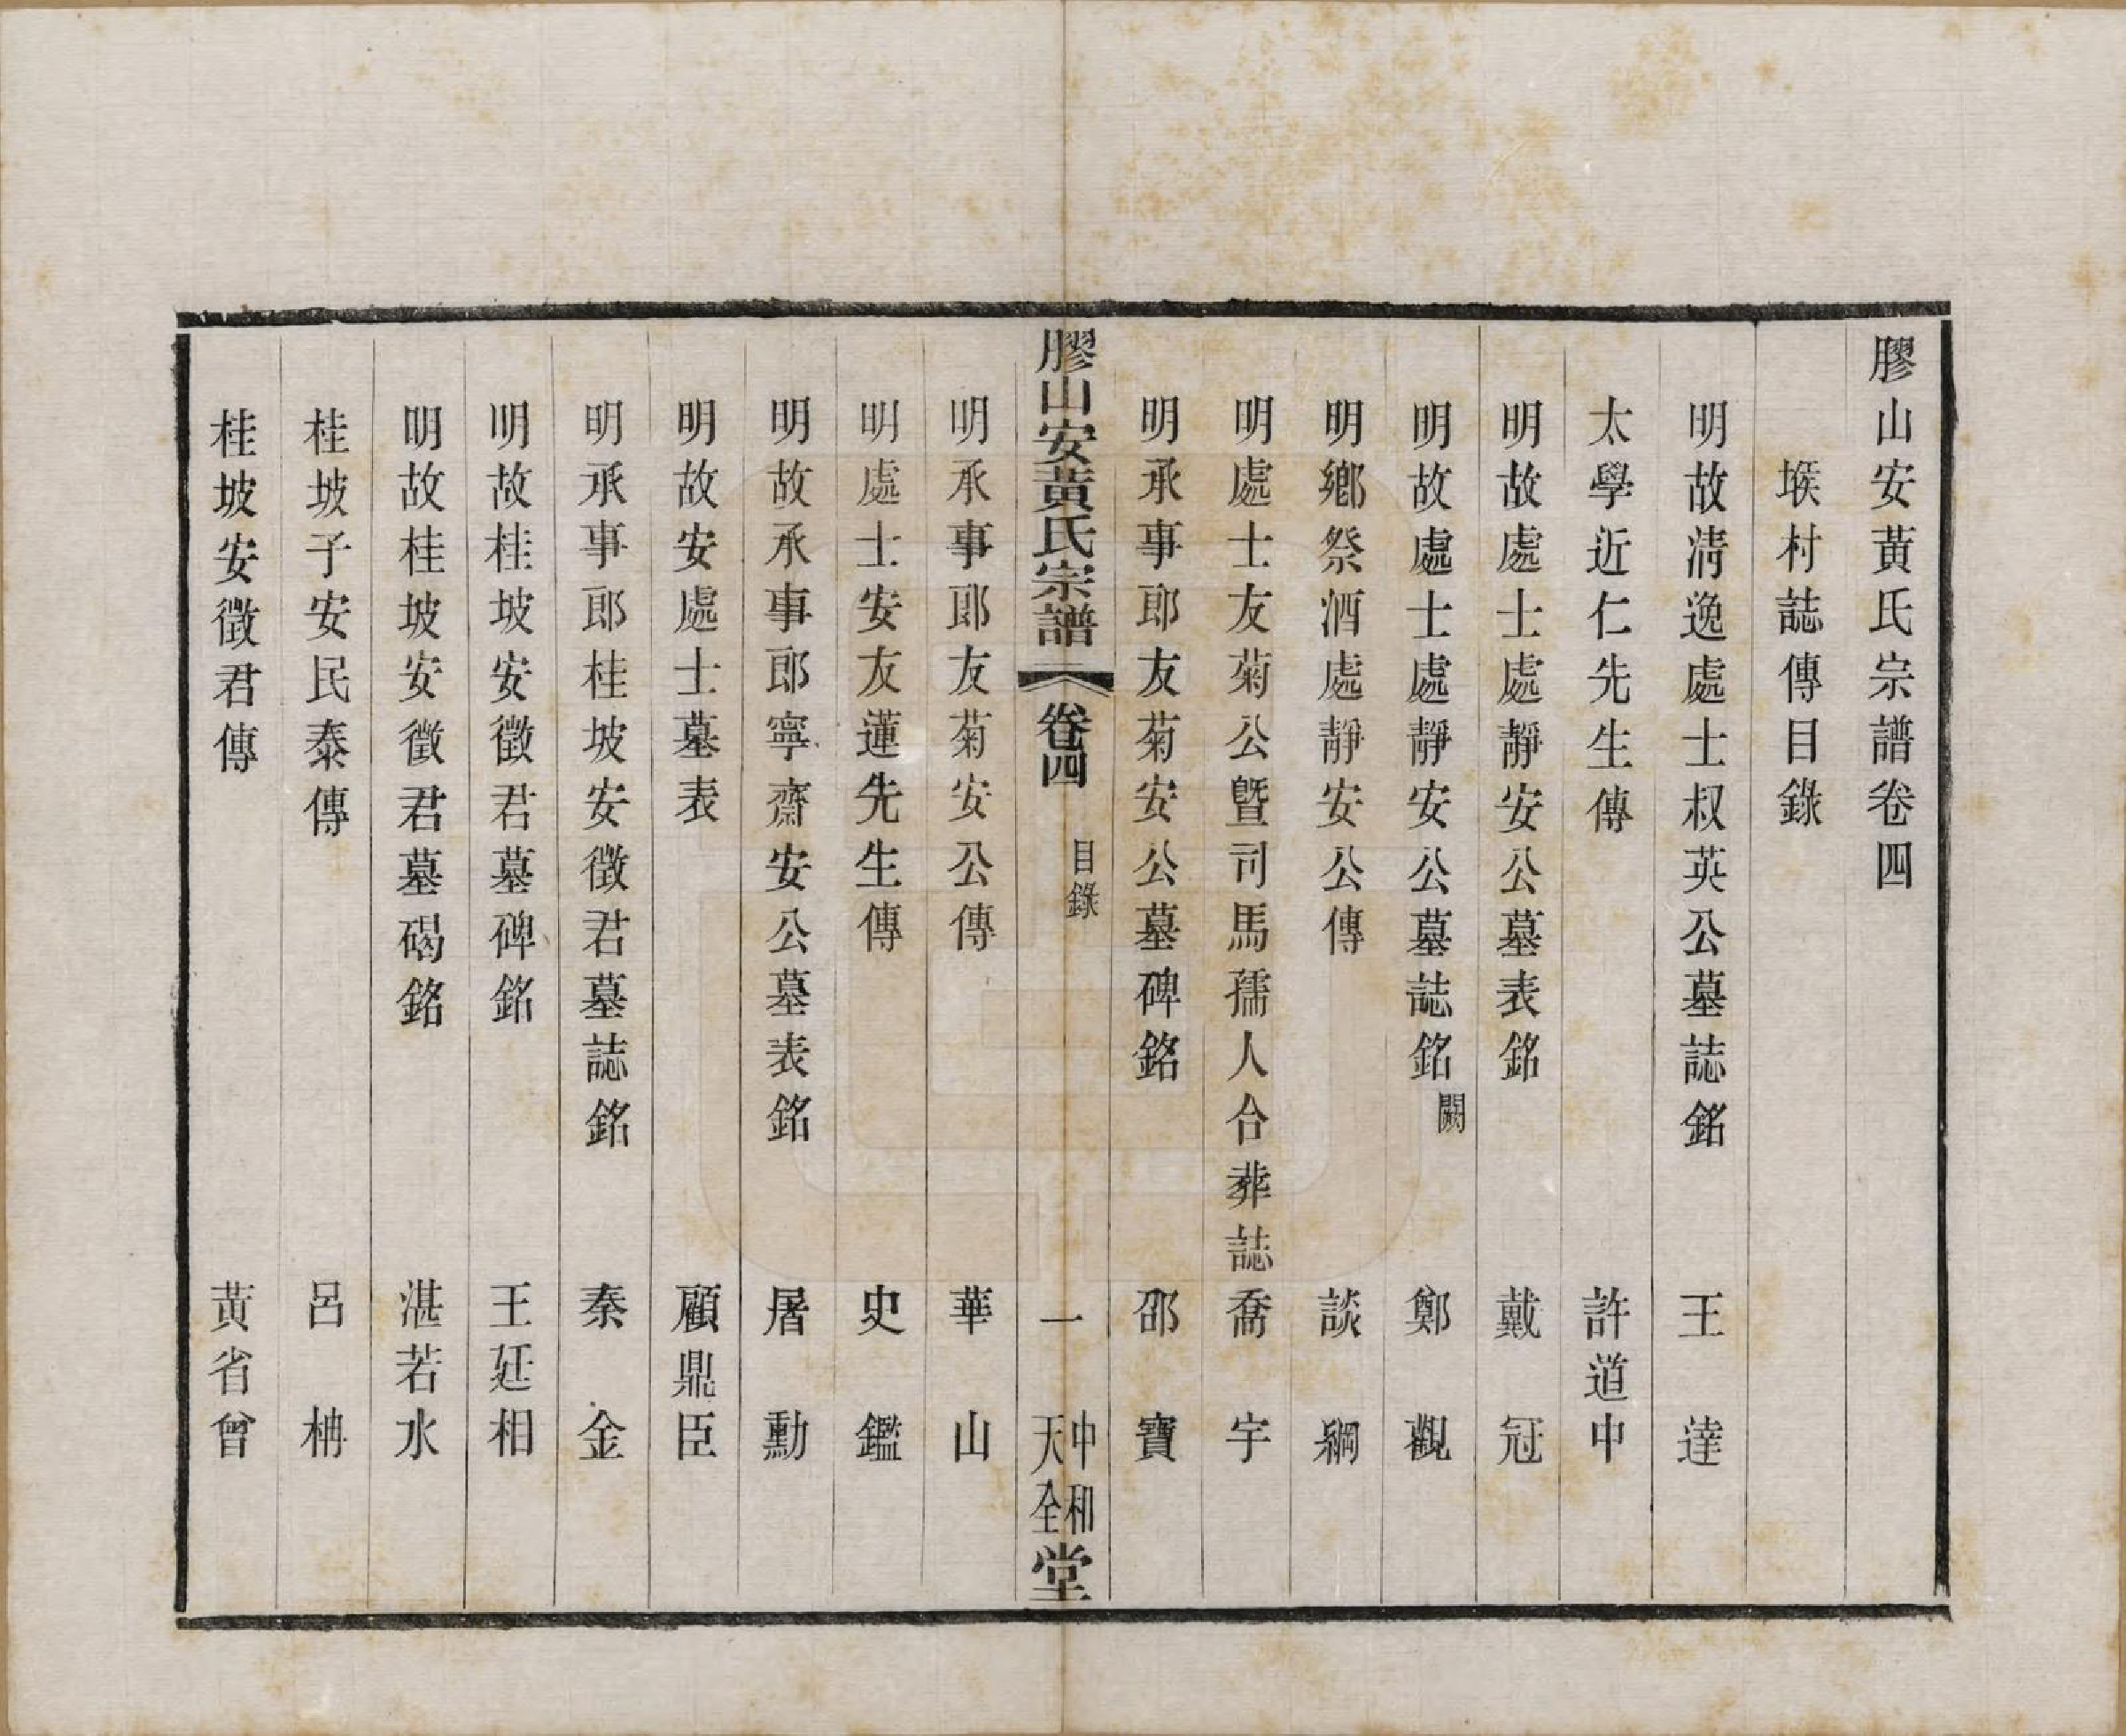 膠山安黃氏宗譜卷四
堠村誌傳目錄
明故淸逸處士叔英公墓誌銘 王達
太學近仁先生傳 許道中
明故處士處靜安公墓表銘 戴冠
明故處士處靜安公墓誌銘 闕 鄭觀
明鄉祭酒處靜安公傳 談綱
明處士友菊公曁司馬孺人合葬誌 喬宇
明承事郎友菊安公墓碑銘 邵寶
膠山安黃氏宗譜 卷四 目錄 一 中和天全堂
明承事郎友菊安公傳 華山
明處士安友蓮先生傳 史鑑
明故承事郎寧齋安公墓表銘 屠勳
明故安處士墓表 顧鼎臣
明承事郎桂坡安徵君墓誌銘 秦金
明故桂坡安徵君墓碑銘 王廷相
明故桂坡安徵君墓碣銘 湛若水
桂坡子安民泰傳 呂柟
桂坡安徵君傳 黃省曾